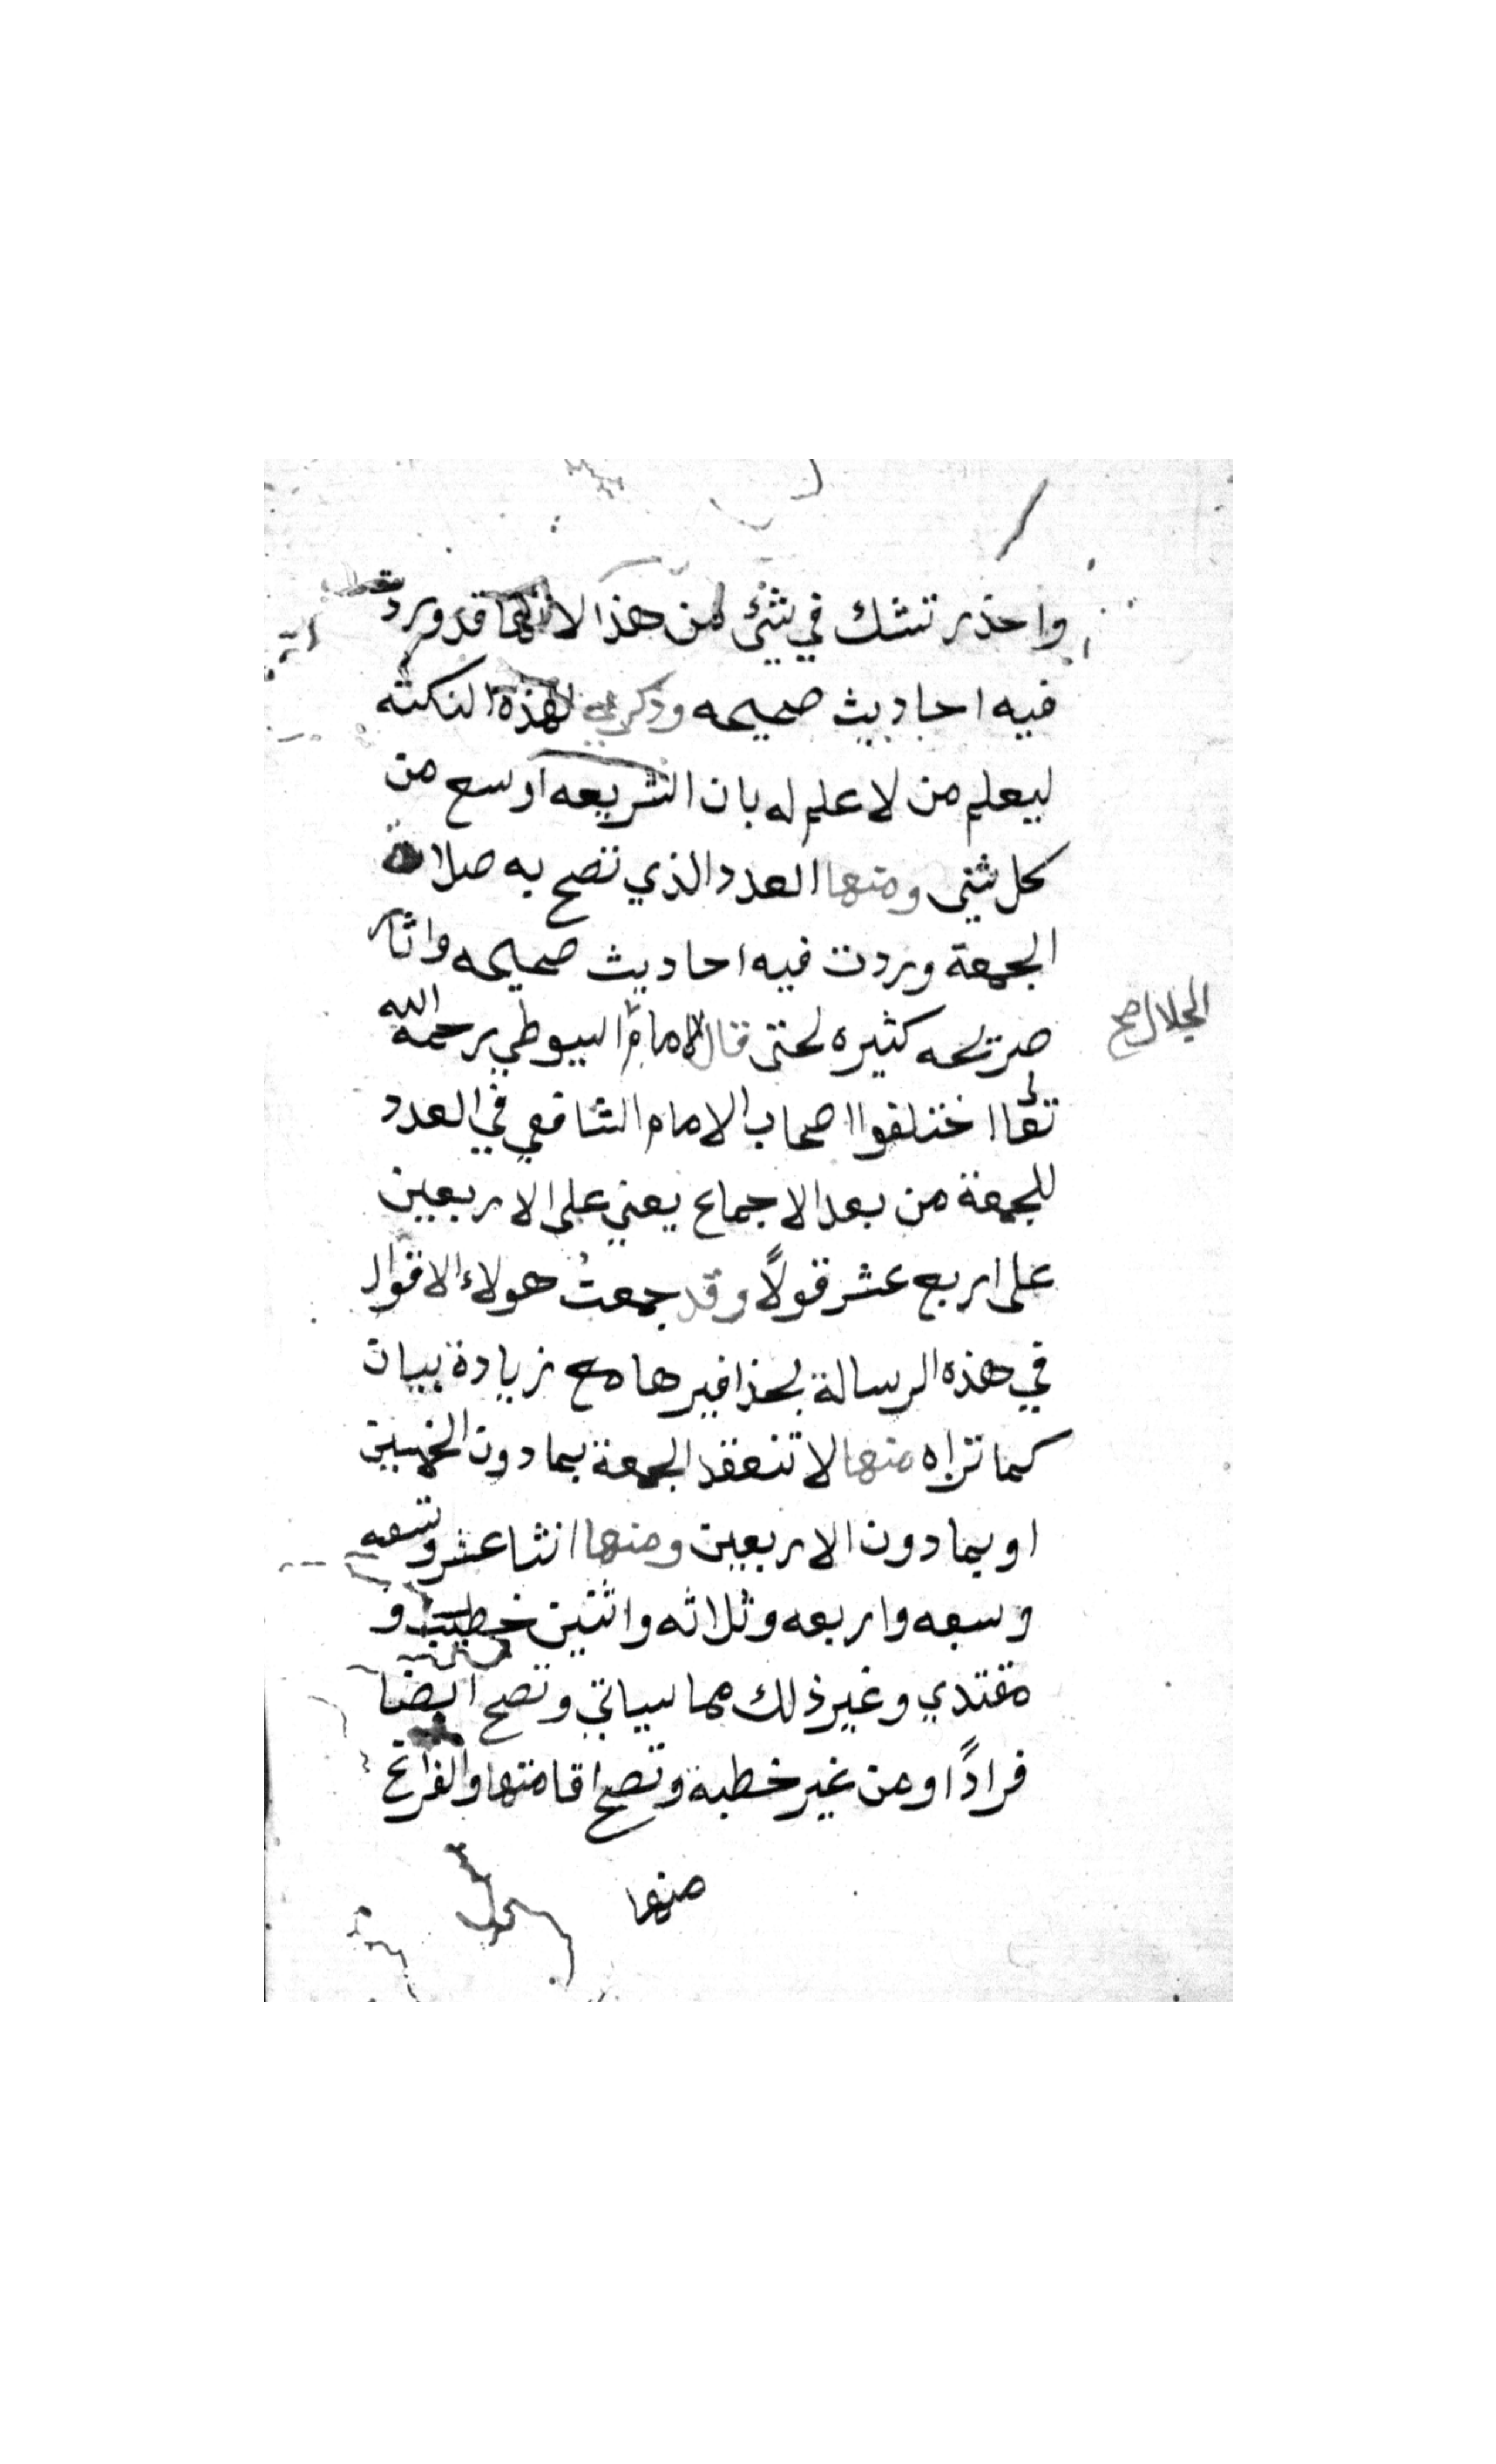 واحذر تشك في شئ من هذا لانها قد وردت
فيه احاديث صحيحه وذكري لهذه النكته
ليعلم من لا علم له بان الشريعه اوسع من
كل شئ ومنها العدد الذي تصح به صلاة
الجمعة وردت فيه احاديث صحيحه واثار
صريحه كثيره لحتى قال الامام السيوطي رحمه الله
الجلال صح
تعالى اختلفوا اصحاب الامام الشافعي في العدد
للجمعة من بعد الاجماع يعني على الاربعين
على اربع عشر قولاً وقد جمعتُ هولاء الاقوال
في هذه الرسالة بحذافيرها مع زيادة بيان
كما تراه منها لا تنعقد الجمعة بما دون الخمسين
او بما دون الاربعين ومنها اثنا عشر وتسعه
وسبعه واربعه وثلاثه واثنين خطيب و
مقتدي وغير ذلك مما سياتي وتصح ايضا
فراداً ومن غير خطبة وتصح اقامتها والفراغ
منها